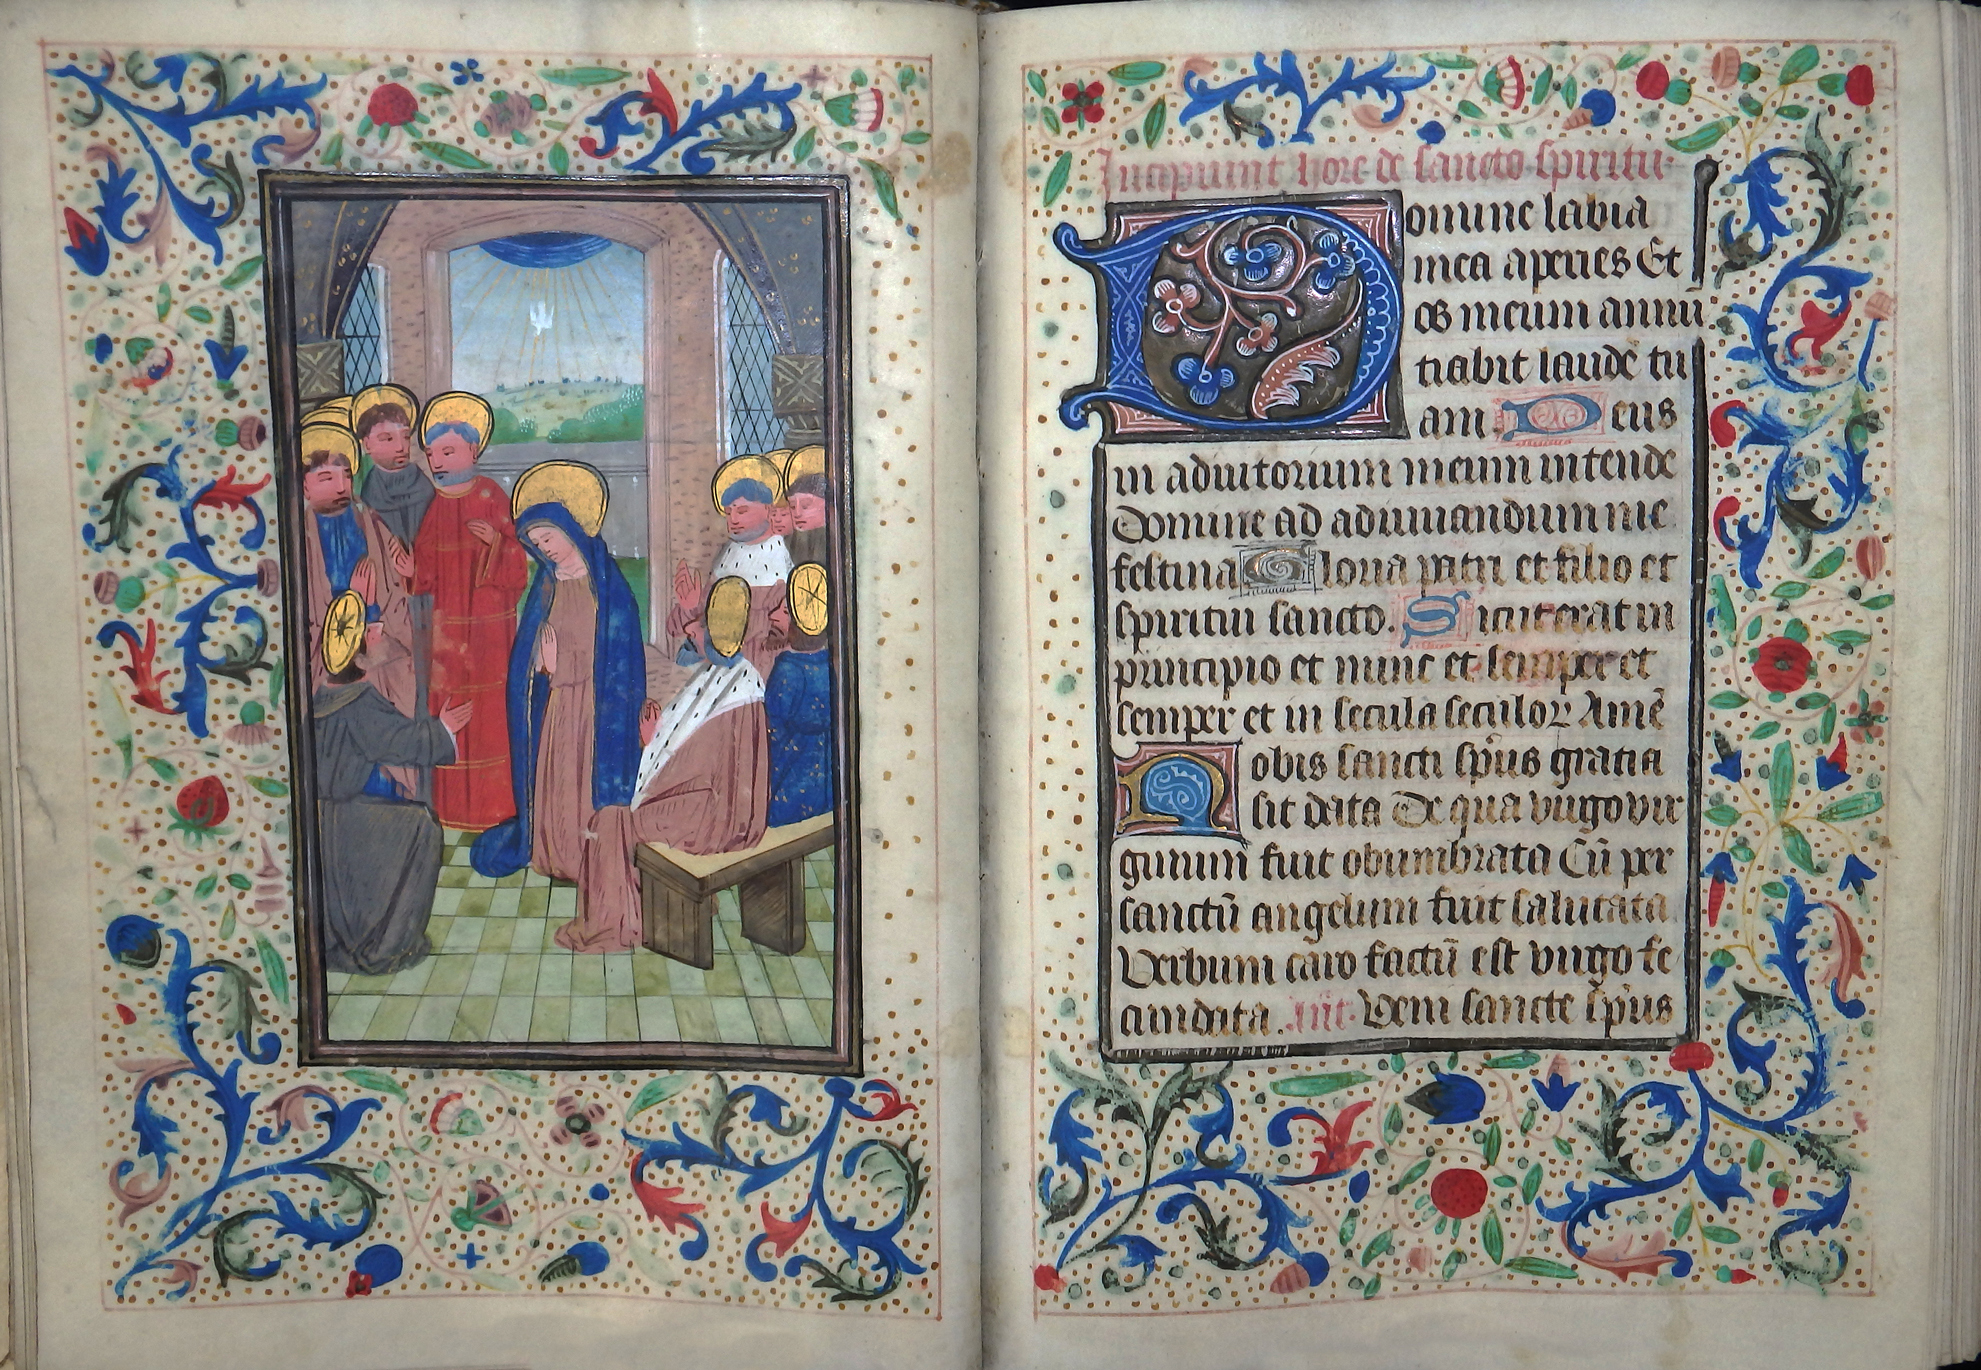 Incipiunt hore de sancto spiritu.
Domine labia
mea aperies Et
os meum annū
tiabit laudē tu
am Deus
in adiutorium meum intende
Domine ad adiuuandum me
festina Gloria patri et filio et
spiritui sancto. Sicut erat in
principio et nunc et semper et
semper et in secula seculoꝝ Amē
Nobis sancti sp̄us gratia
sit data De qua uirgo uir
ginum fuit obumbrata Cū per
sanctū angelum fuit salutata
Verbum caro factū est uirgo fe
cundata. Ant̄. Veni sancte sp̄us